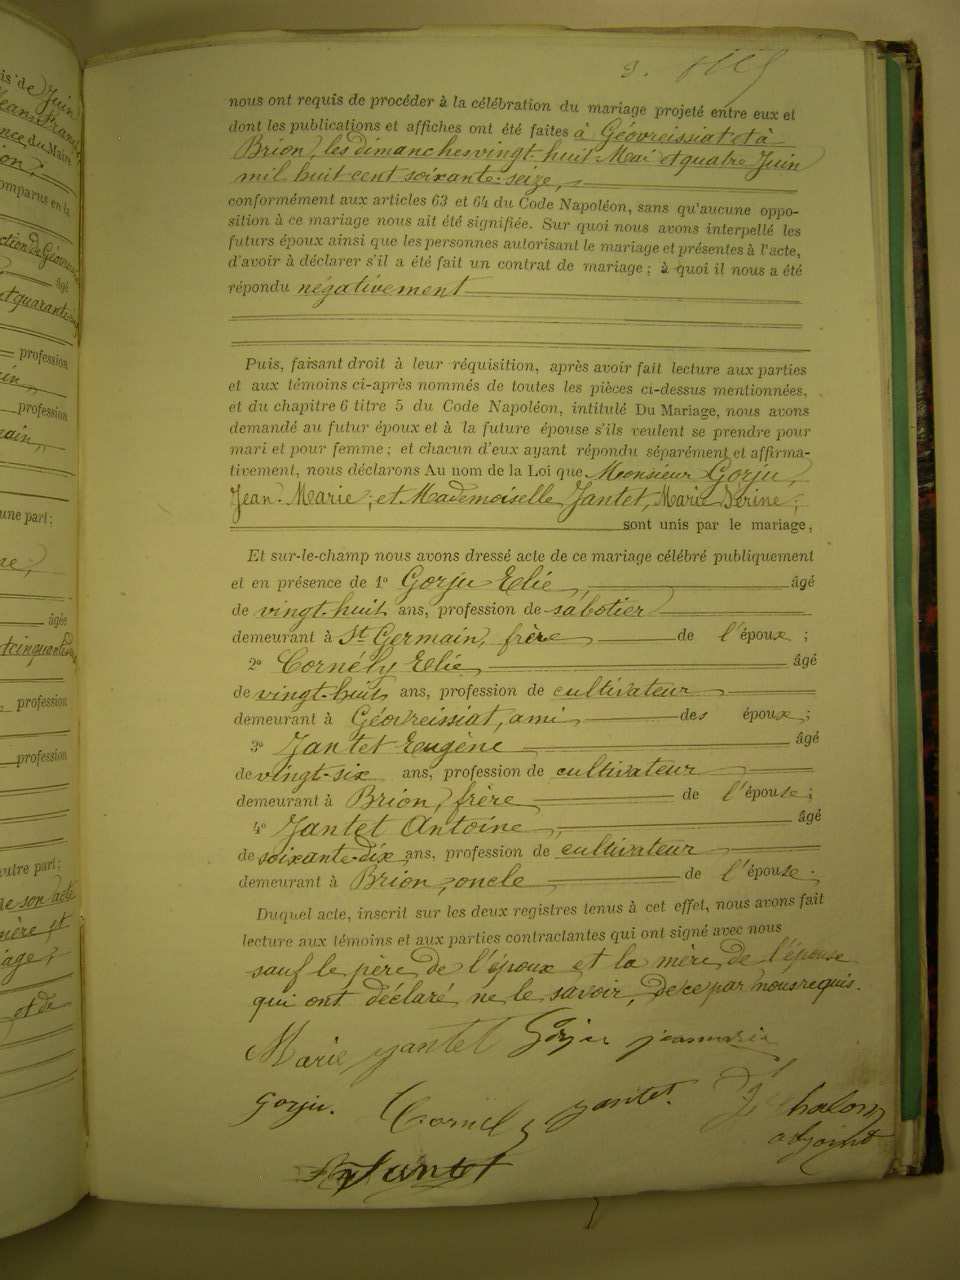 is de Juin
ence du Maire
comparus en la
âgé
et quarante
profession
profession
une part;
âgée
profession
profession
autre part;
de son acte
mère et
et de
9.
nous ont requis de procéder à la célébration du mariage projeté entre eux et
dont les publications et affiches ont été faites à Géovreissiat et à
Brion, les dimanches vingt-huit Mai et quatre Juin
mil huit cent soixante-seize,
conformément aux articles 63 et 64 du Code Napoléon, sans qu'aucune oppo-
sition à ce mariage nous ait été signifiée. Sur quoi nous avons interpellé les
futurs époux ainsi que les personnes autorisant le mariage et présentes à l'acte,
d'avoir à déclarer s'il a été fait un contrat de mariage; à quoi il nous a été
répondu négativement
Puis, faisant droit à leur réquisition, après avoir fait lecture aux parties
et aux témoins ci-après nommés de toutes les pièces ci-dessus mentionnées,
et du chapitre 6 titre 5 du Code Napoléon, intitulé Du Mariage, nous avons
demandé au futur époux et à la future épouse s'ils veulent se prendre pour
mari et pour femme; et chacun d'eux ayant répondu séparément et affirma-
tivement, nous déclarons Au nom de la Loi que Monsieur Gorju,
Jean-Marie; et Mademoiselle Jantet, Marie Serine;
sont unis par le mariage,
Et sur-le-champ nous avons dressé acte de ce mariage célébré publiquement
et en présence de 1º Gorju Elie, âgé
de vingt-huit ans, profession de sabotier
demeurant à St Germain, frère de l'époux;
2º Cornély Elie âgé
de vingt-huit ans, profession de cultivateur
demeurant à Géovreissiat, ami des époux;
3º Jantet Eugène âgé
de vingt-six ans, profession de cultivateur
demeurant à Brion, frère de l'épouse;
4º Jantet Antoine, âgé
de soixante-dix ans, profession de cultivateur
demeurant à Brion, oncle de l'épouse.
Duquel acte, inscrit sur les deux registres tenus à cet effet, nous avons fait
lecture aux témoins et aux parties contractantes qui ont signé avec nous
sauf le père de l'époux et la mère de l'épouse
qui ont déclaré ne le savoir, de ce par nous requis.
Marie jantet Gorju jeanmarie
Gorju. Cornély jantet. Chalon
adjoint
Jantet